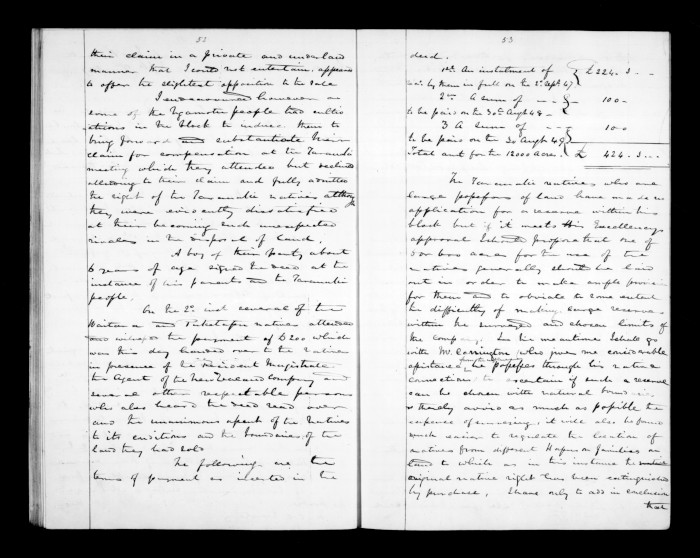 52
their claim in a private and underhand
manner that I could not entertain, appears
to offer the slightest opposition to the sale
I endeavoured however as
some of the Ngamotu people had cultiv
ations in the block to induce them to
bring forward and substantiate their
claim for compensation at the Taranaki
meeting which they attended but declined
alluding to their claim and fully admitted
the right of the Taranaki natives although
they were evidently dissatisfied
at their becoming such unexpected
rivals in the disposal of land.
A boy of their party about
6 years of age signed the deed at the
instance of his parents and the Taranaki
people.
On the 2d inst several of the
Waitara and natives attended
and witnessed the payment of £200 which
was this day handed over to the natives
in presence of the Resident Magistrate
the Agent of the New Zealand Company and
several other respectable persons
who also heard the deed read over
and the unanimous assent of the natives
to its conditions and the boundaries of the
land they had sold
The following are the
terms of payment as inserted in the
53
deed.
1st An instalment of £224. 3 - -
by them in full on the
2nd A sum of - - 100 -
to be paid on the 30th Augt 48 -
3 A sum of - - 100
to be paid on the 30 Augt 49
Total amt for the 12000 acres. £ 424. 3 - -
The Taranaki natives who are
large possessors of land have made
application for a reserve within this
block but if it meets His Excellency's
approval I should propose that one of
500 acres for the use of the
natives generally should be laid
out in order to make ample provision
for them and to obviate to some extent
the difficulty of making large reserves
within the surveyed and chosen limits of
the company. In the meantime I shall go
with Mr. Carrington who gives me considerable
assistance he possesses through his native
connections to ascertain if such a reserve
can be chosen with natural boundaries
& thereby avoid as much as possible the
expense of surveying, it will also be found
much easier to regulate the location of
natives from different Hapus or families on
land to which as in this instance the
original native right has been extinguished
by purchase. I have only to add in conclusion
that